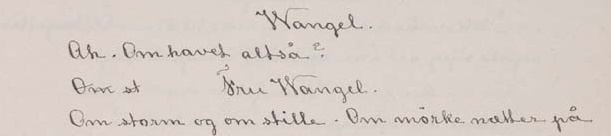 Wangel.
Ah. Om havet altså?
Om st Fru Wangel.
Om storm og om stille. Om mörke nætter på